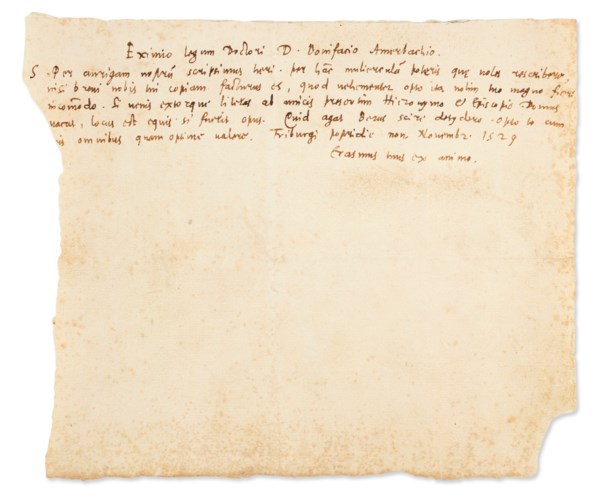 Eximio legum Doctori D. Bonifacio Amerbachio.
S. Per aurigam nostrū scripsimus heri. per hāc mulierculā poteris quę voles rescribere
nisi brevi nobis tui copiam facturus es, quod vehementer opto ita nolim tuo magno fieri
incōmodo. Si venis extorque literas ab amicis presertim Hieronymo et Episcopio Domus
vacat, locus est equis si fueris opus. Quid agat Berus scire desydero. opto te cum
tuis omnibus quam optime valere. Friburgi postridie non Novembr. 1529
Erasmus tuus ex animo.